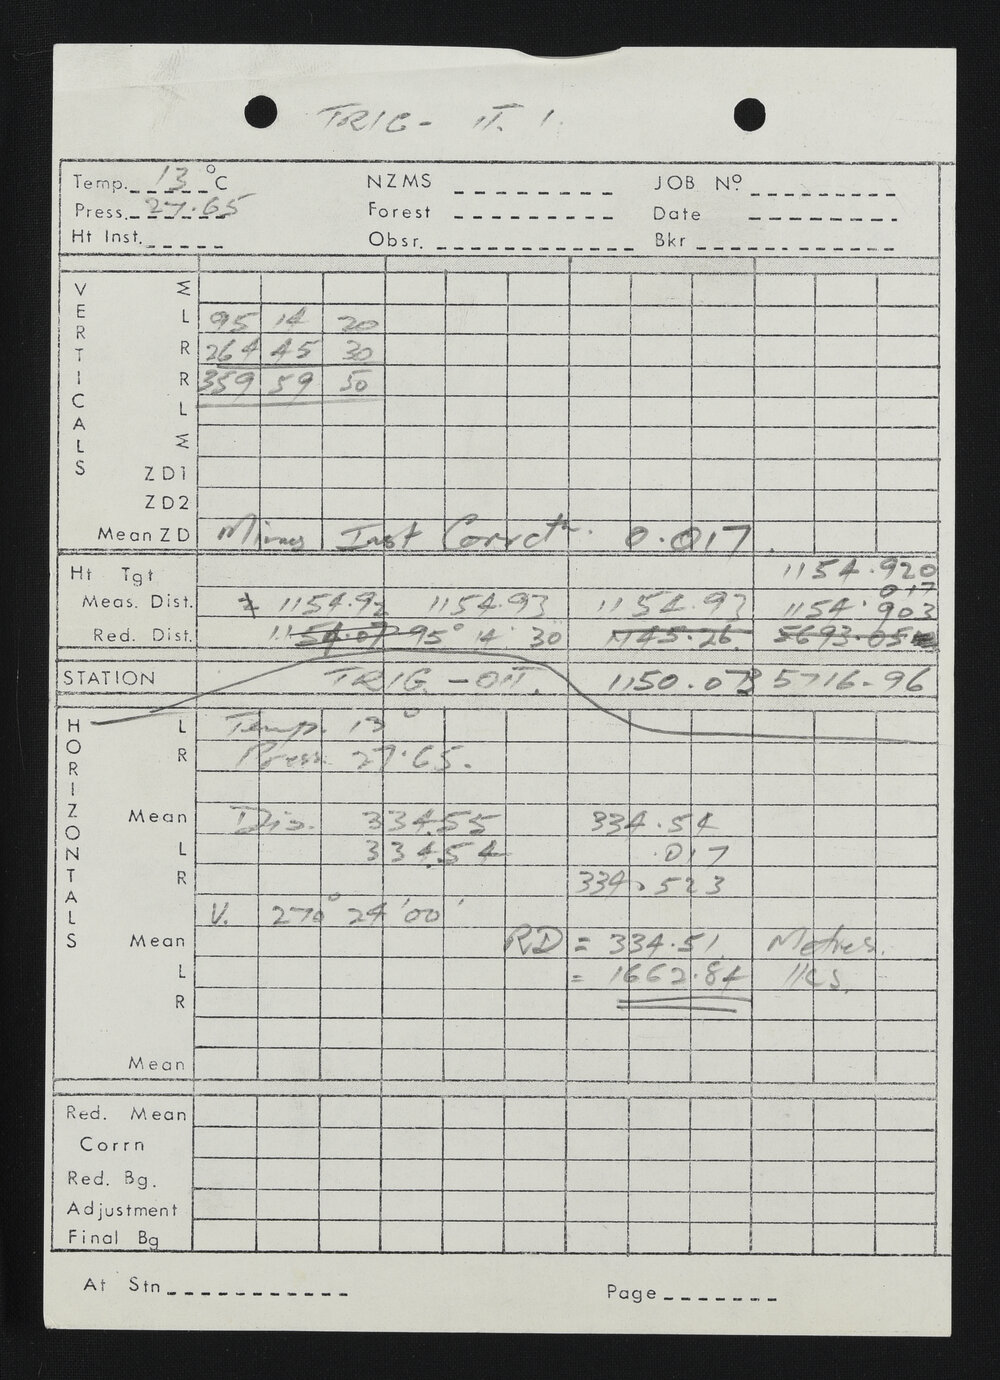 TRIG - IT. 1.
Temp. 13 °C NZMS JOB Nº
Press. 27.65 Forest Date
Ht Inst. Obsr. Bkr
VERTICALS
Σ
L 95 14 20
R 264 45 30
R 359 59 50
L
Σ
ZD1
ZD2
Mean ZD Minus Inst Corrctn. 0.017.
Ht Tgt 1154.920
017
Meas. Dist. 1154.92 1154.93 1154.93 1154.903
Red. Dist. 1154.07 95° 14' 30 1145.26 5693.05
STATION TRIG - OIT. 1150.073 5716.96
HORIZONTALS
L Temp. 13°
R Press. 27.65.
Mean Dis. 334.55 334.54
L 334.54 .017
R 334.523
V. 270° 24' 00'
Mean RD = 334.51 Metres.
L = 1662.84 lks.
R
Mean
Red. Mean
Corrn
Red. Bg.
Adjustment
Final Bg
At Stn Page